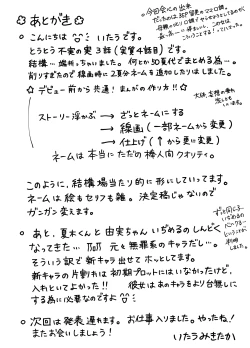 ☆ あとがき ☆
○ こんにちは いたうです。
とうとう 不実の実 3話(実質4話目)です。
結構…端折っちゃいました。何とか30頁代でまとめる為…。
削りすぎたので線画時に2頁分ネームを追加したりはしました。
☆ デビュー前から共通! まんがの作り方!! ☆
ストーリー浮かぶ → ざっとネームにする
→ 線画(一部ネームから変更)
→ 仕上げ(↑から更に変更)
ネームは本当にただの棒人向クオリティ。
このように、結構場当たり的に形にしていってます。
ネームは絵もセリフも雑。決定稿じゃないので
ガンガン変えます。
○ あと、夏木くんと由実ちゃんいぢめるのしんどく
なってきた… 元々無罪系のキャラだし…。
そういう訳で新キャラ出せてホッとしてます。
新キャラの片割れは初期プロットにはいなかったけど、
入れといてよかった!! 彼女はあのキャラをより台無しに
する為に必要なのですよ
○ 次回は発表遅れます。お仕事入りました。やったね!
またお会いしましょう!
いたうみきたか